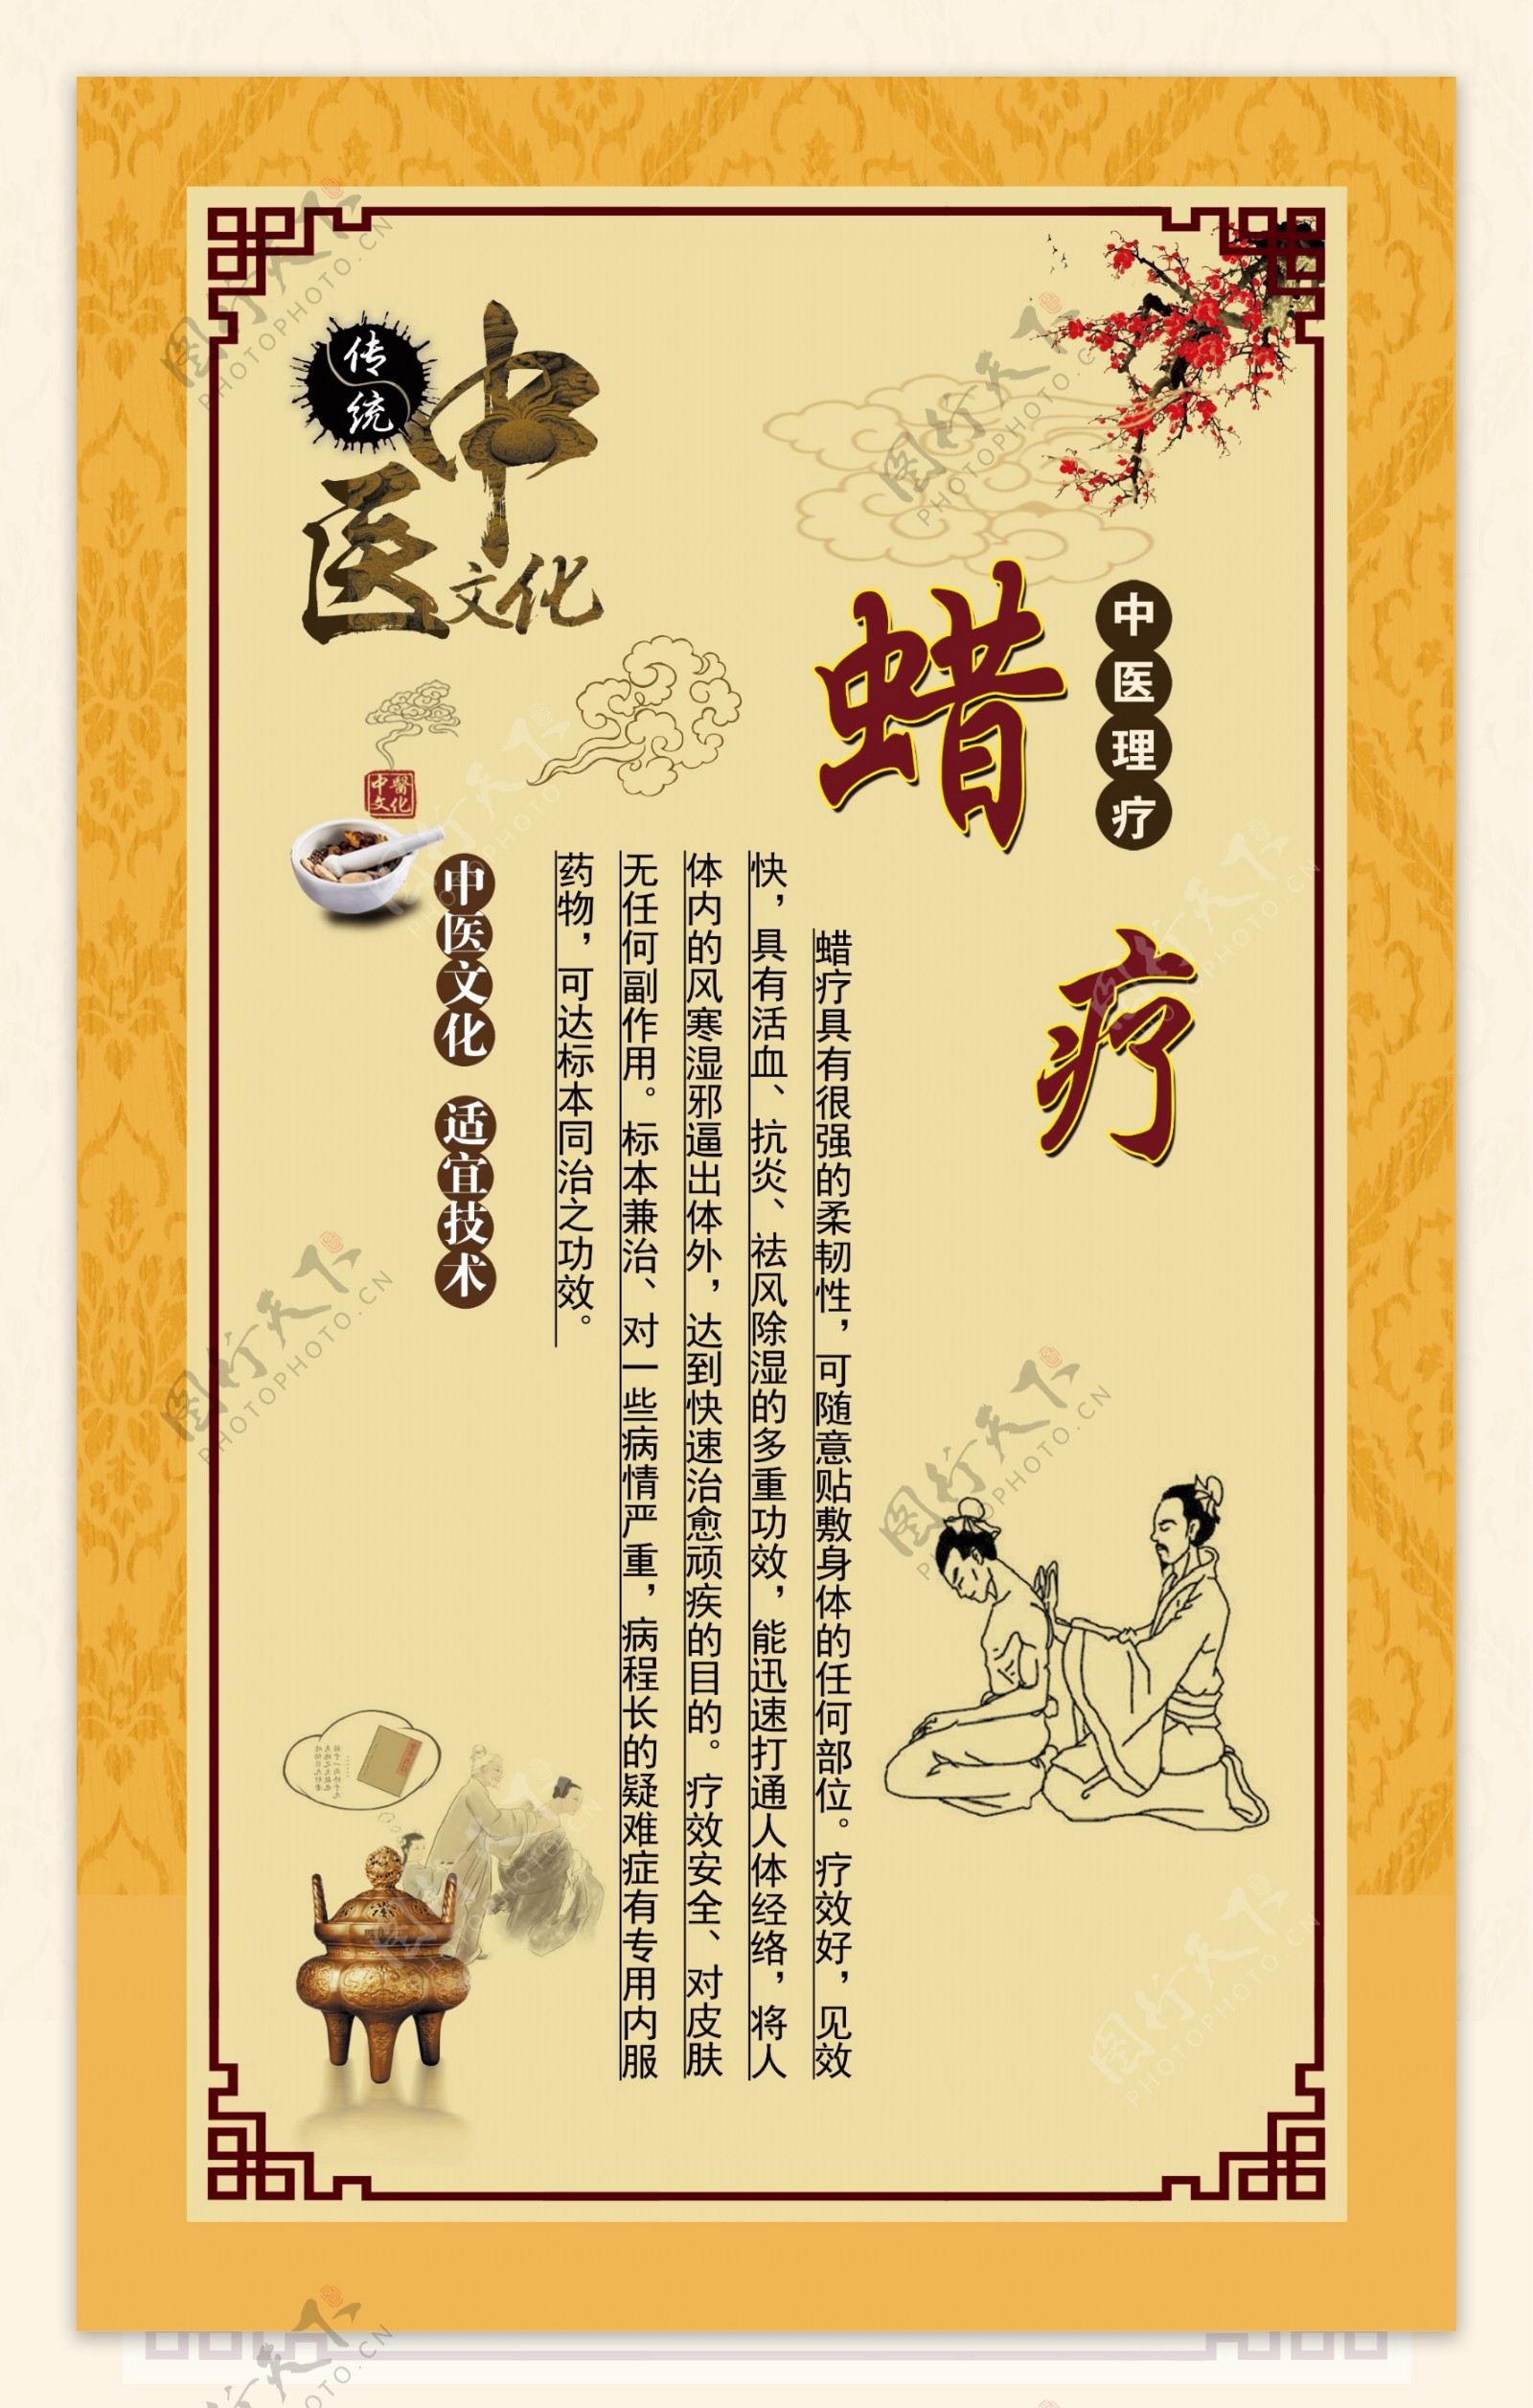 传统
中医文化
中醫文化
中医理疗
蜡疗
蜡疗具有很强的柔韧性，可随意贴敷身体的任何部位。疗效好，见效
快，具有活血、抗炎、祛风除湿的多重功效，能迅速打通人体经络，将人
体内的风寒湿邪逼出体外，达到快速治愈顽疾的目的。疗效安全、对皮肤
无任何副作用。标本兼治、对一些病情严重，病程长的疑难症有专用内服
药物，可达标本同治之功效。
中医文化 适宜技术
图行天下
PHOTOPHOTO.CN